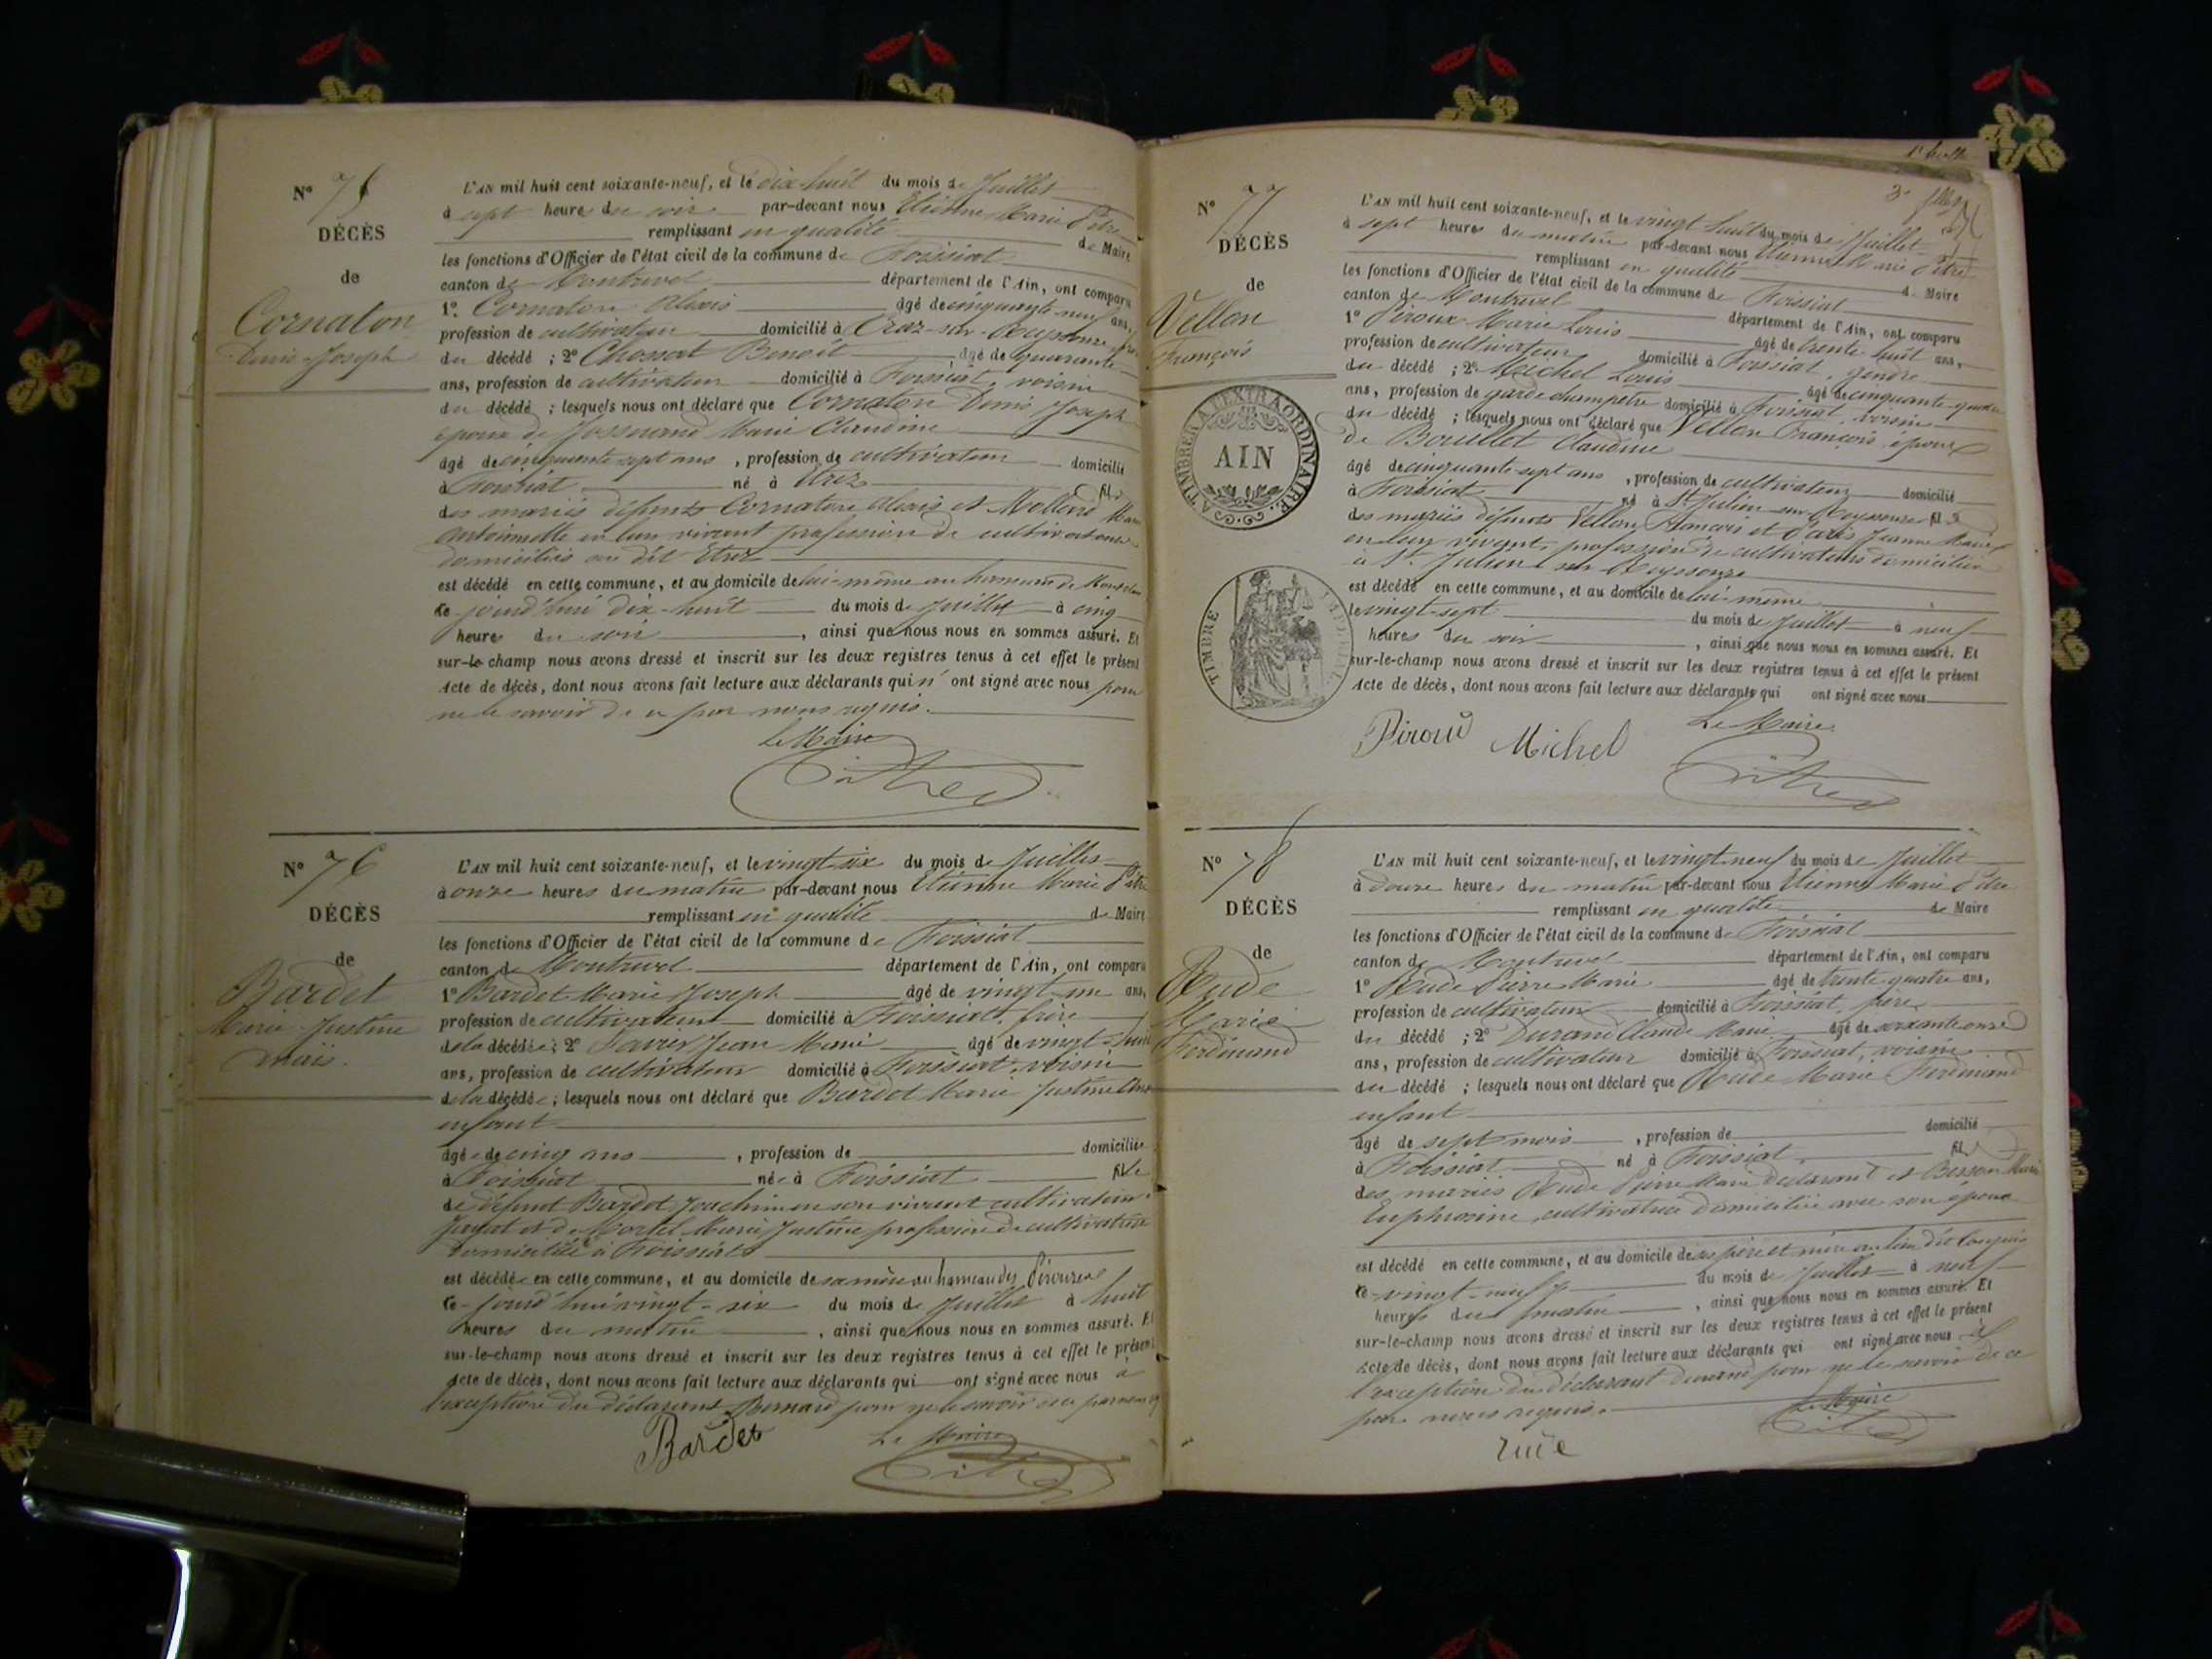 N° 75
DÉCÈS
de
Cornaton
Denis-Joseph
L'AN mil huit cent soixante-neuf, et le dix-huit du mois de Juillet
à sept heures du soir par-devant nous Etienne Marie Pitre
remplissant en qualité de Maire
les fonctions d'Officier de l'état civil de la commune de Foissiat
canton de Montrevel département de l'Ain, ont comparu
1° Cornaton Alexis âgé de cinquante-neuf ans,
profession de cultivateur domicilié à Craz-sur-Reyssouze
du décédé ; 2° Chossat Benoît âgé de quarante
ans, profession de cultivateur domicilié à Foissiat, voisin
du décédé ; lesquels nous ont déclaré que Cornaton Denis Joseph
époux de Josserand Marie Claudine
âgé de cinquante sept ans, profession de cultivateur domicilié
à Foissiat né à Etrez fils
des mariés défunts Cornaton Alexis et Marie
Antoinette en leur vivant profession de cultivateurs
domiciliés au dit Etrez
est décédé en cette commune, et au domicile de lui-même au hameau de
ce jourd'hui dix-huit du mois de Juillet à cinq
heures du soir, ainsi que nous nous en sommes assuré. Et
sur-le-champ nous avons dressé et inscrit sur les deux registres tenus à cet effet le présent
Acte de décès, dont nous avons fait lecture aux déclarants qui n'ont signé avec nous pour
ne le savoir de ce par nous requis.
Le Maire
Pitre
N° 76
DÉCÈS
de
Bardet
Marie-Justine
L'AN mil huit cent soixante-neuf, et le vingt-six du mois de Juillet
à onze heures du matin par-devant nous Etienne Marie Pitre
remplissant en qualité de Maire
les fonctions d'Officier de l'état civil de la commune de Foissiat
canton de Montrevel département de l'Ain, ont comparu
1° Bardet Marie Joseph âgé de vingt-un ans,
profession de cultivateur domicilié à Foissiat, frère
de la décédée ; 2° Jean Marie âgé de vingt-huit
ans, profession de cultivateur domicilié à Foissiat, voisin
de la décédée ; lesquels nous ont déclaré que Bardet Marie Justine
enfant
âgée de cinq ans, profession de domiciliée
à Foissiat née à Foissiat fille
de défunt Bardet Joachim en son vivant cultivateur
et de Marie Justine profession de cultivatrice
domiciliée à Foissiat
est décédée en cette commune, et au domicile de sa mère au hameau des
ce jourd'hui vingt-six du mois de Juillet à huit
heures du matin, ainsi que nous nous en sommes assuré. Et
sur-le-champ nous avons dressé et inscrit sur les deux registres tenus à cet effet le présent
Acte de décès, dont nous avons fait lecture aux déclarants qui ont signé avec nous à
l'exception du déclarant pour ne le savoir de ce par nous
Bardet
Le Maire
Pitre
N° 77
DÉCÈS
de
Vellon
François
A TIMBRER A L'EXTRAORDINAIRE
AIN
TIMBRE IMPERIAL
L'AN mil huit cent soixante-neuf, et le vingt huit du mois de Juillet
à sept heures du matin par-devant nous Etienne Marie Pitre
remplissant en qualité de Maire
les fonctions d'Officier de l'état civil de la commune de Foissiat
canton de Montrevel département de l'Ain, ont comparu
1° Piroux Marie Louis âgé de trente huit ans,
profession de cultivateur domicilié à Foissiat, gendre
du décédé ; 2° Michel Louis âgé de cinquante-quatre
ans, profession de garde champêtre domicilié à Foissiat, voisin
du décédé ; lesquels nous ont déclaré que Vellon François époux
de Bouillet Claudine
âgé de cinquante-sept ans, profession de cultivateur domicilié
à Foissiat né à St Julien sur Reyssouze fils
des mariés défunts Vellon François et Jeanne Marie
en leur vivant profession de cultivateurs domiciliés
à St. Julien sur Reyssouze
est décédé en cette commune, et au domicile de lui-même
le vingt-sept du mois de Juillet à neuf
heures du soir, ainsi que nous nous en sommes assuré. Et
sur-le-champ nous avons dressé et inscrit sur les deux registres tenus à cet effet le présent
Acte de décès, dont nous avons fait lecture aux déclarants qui ont signé avec nous
Le Maire
Piroux Michel
Pitre
N° 78
DÉCÈS
de
Rude
Marie
Ferdinand
L'AN mil huit cent soixante-neuf, et le vingt-neuf du mois de Juillet
à douze heures du matin par-devant nous Etienne Marie Pitre
remplissant en qualité de Maire
les fonctions d'Officier de l'état civil de la commune de Foissiat
canton de Montrevel département de l'Ain, ont comparu
1° Rude Pierre Marie âgé de trente-quatre ans,
profession de cultivateur domicilié à Foissiat, père
du décédé ; 2° Durand Claude Marie âgé de soixante onze
ans, profession de cultivateur domicilié à Foissiat, voisin
du décédé ; lesquels nous ont déclaré que Rude Marie Ferdinand
enfant
âgé de sept mois, profession de domicilié
à Foissiat né à Foissiat fils
des mariés Rude Pierre Marie déclarant et Besson Marie
Euphrosine, cultivatrice domiciliée avec son époux
est décédé en cette commune, et au domicile de ses père et mère au lieu dit
ce vingt-neuf du mois de Juillet à neuf
heures du matin, ainsi que nous nous en sommes assuré. Et
sur-le-champ nous avons dressé et inscrit sur les deux registres tenus à cet effet le présent
Acte de décès, dont nous avons fait lecture aux déclarants qui ont signé avec nous à
l'exception du déclarant Durand pour ne le savoir de ce
par nous requis.
Le Maire
Pitre
rude